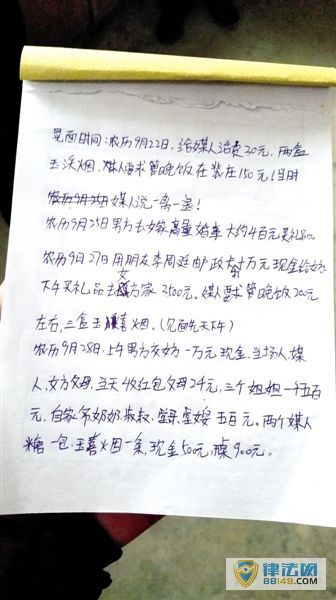 见面时间:农历9月22日,给媒人洽费30元,两盒
玉溪烟,媒人要求管晚饭在 150元(当时
农历9月25日媒人说一离一退!
农历9月25日男方去嫁商量婚事大约4百元买礼品.
农历9月27日用朋友李周延邮政 万元现金给
下午买礼品去女方家3500元.媒人要求管晚饭200元
左右,三盒玉 烟.(见面 天下午)
农历9月28日,上午男方交女方一万元现金,当场人,媒
人,女方父母,当天收红包父母24元,三个姐姐一千五百
元,自家爷奶奶,叔叔, 五百元.两个媒人
糖一包,玉 烟一条,现金50元, 900元.
律法网
88148.com